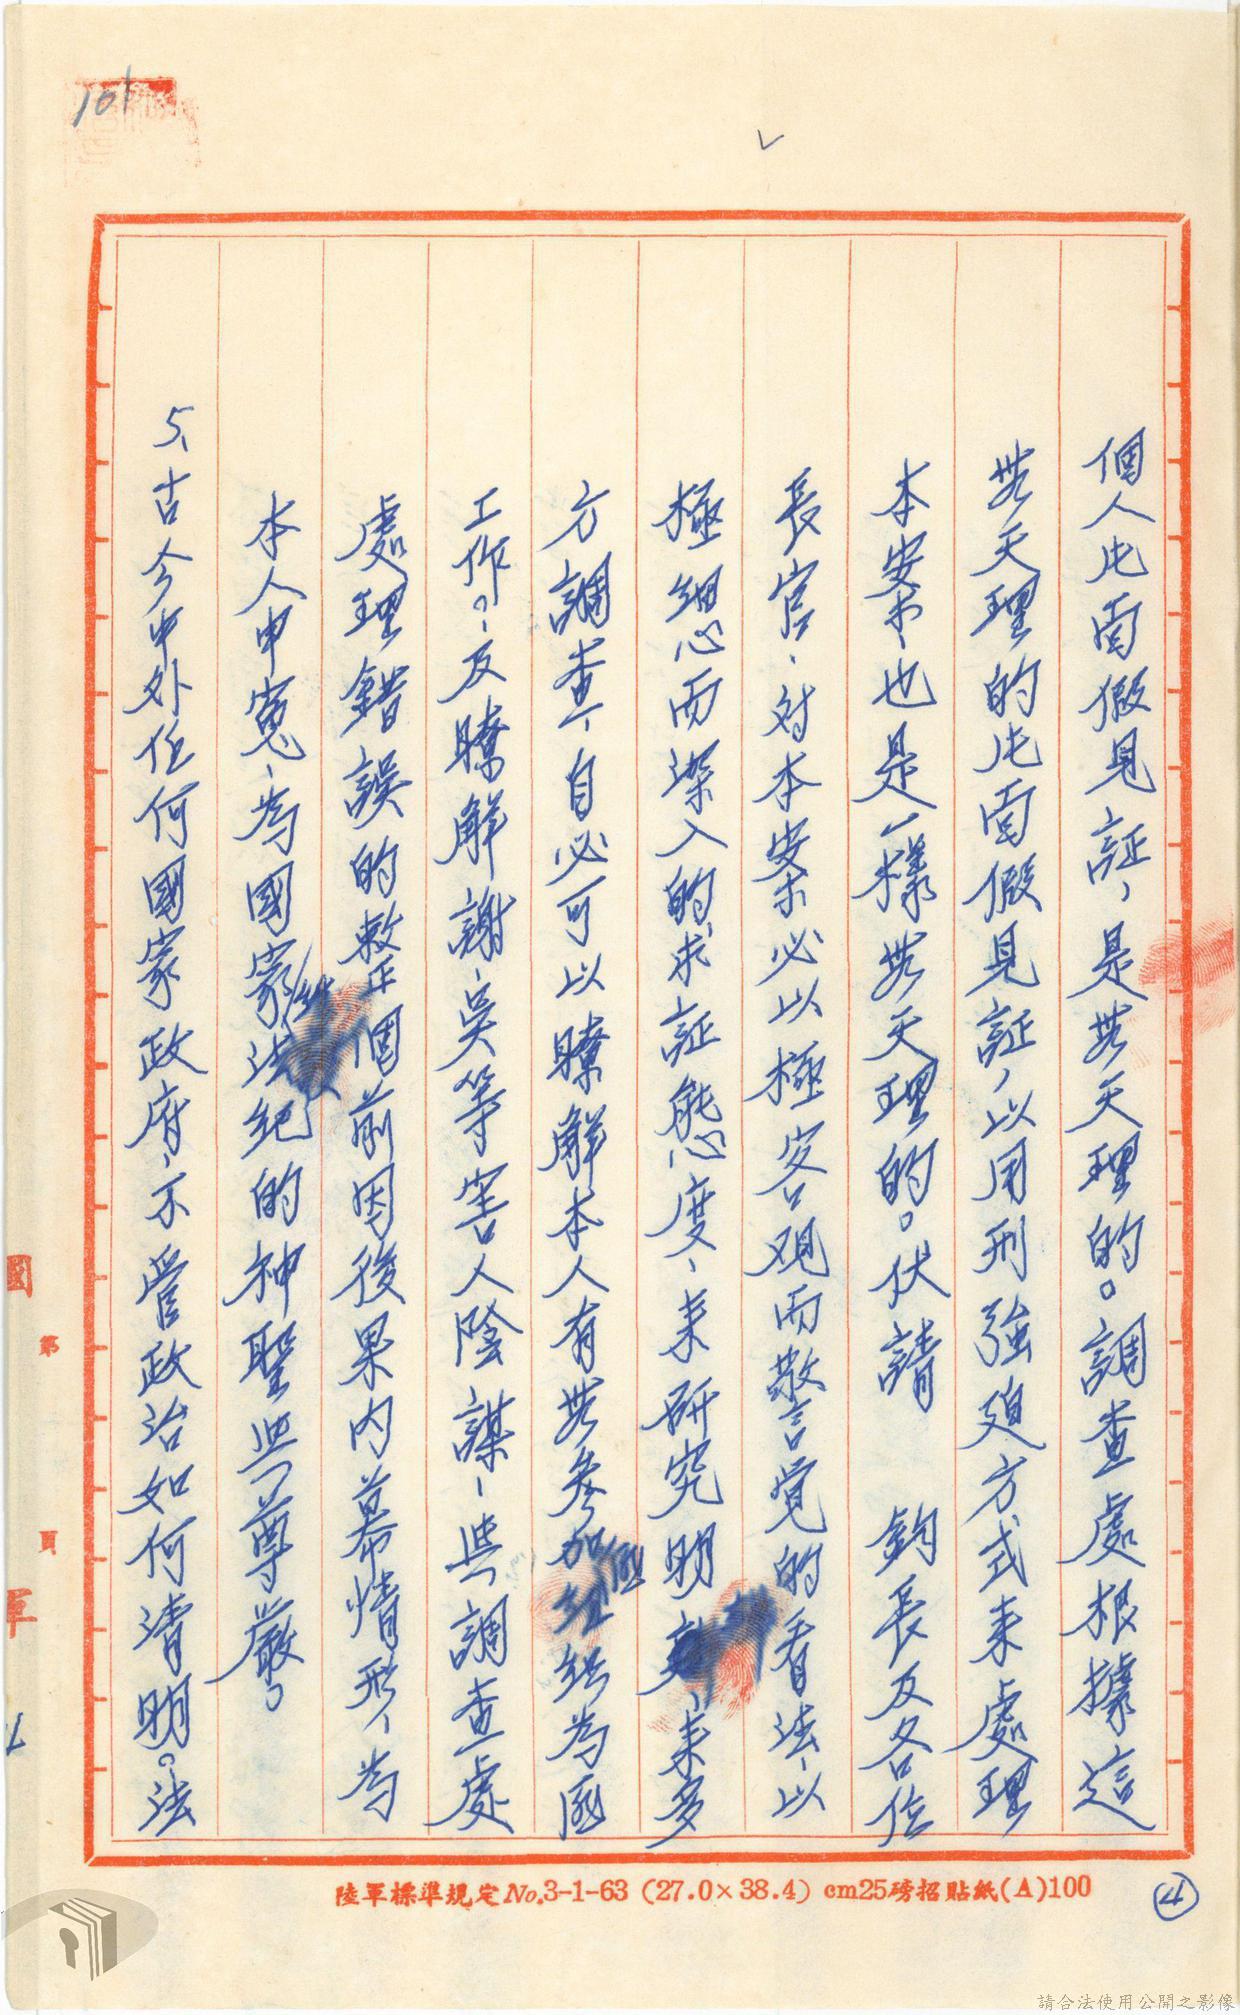 101
個人片面假見証，是無天理的。調查處根據這
無天理的片面假見証，以用刑強廹方式來處理
本案、也是一樣無天理的。伏請　鈞長及各位
長官、対本案必以極客观而敬言覚的看法、以
極細心而深入的求証態度、來研究明　、來多
方調查、自必可以瞭解本人有無參加組織為匪
工作。、及瞭解謝、吳等害人陰謀、與調查處
處理錯誤的整個前因後果內幕情形、為
本人申寃、為國家法紀的神聖與尊嚴。
5、古今中外任何國家政府、不管政治如何清明。法
國
第
頁
軍
陸軍標準規定No.3-1-63 (27.0×38.4) cm25磅招貼紙(A)100
4
請合法使用公開之影像